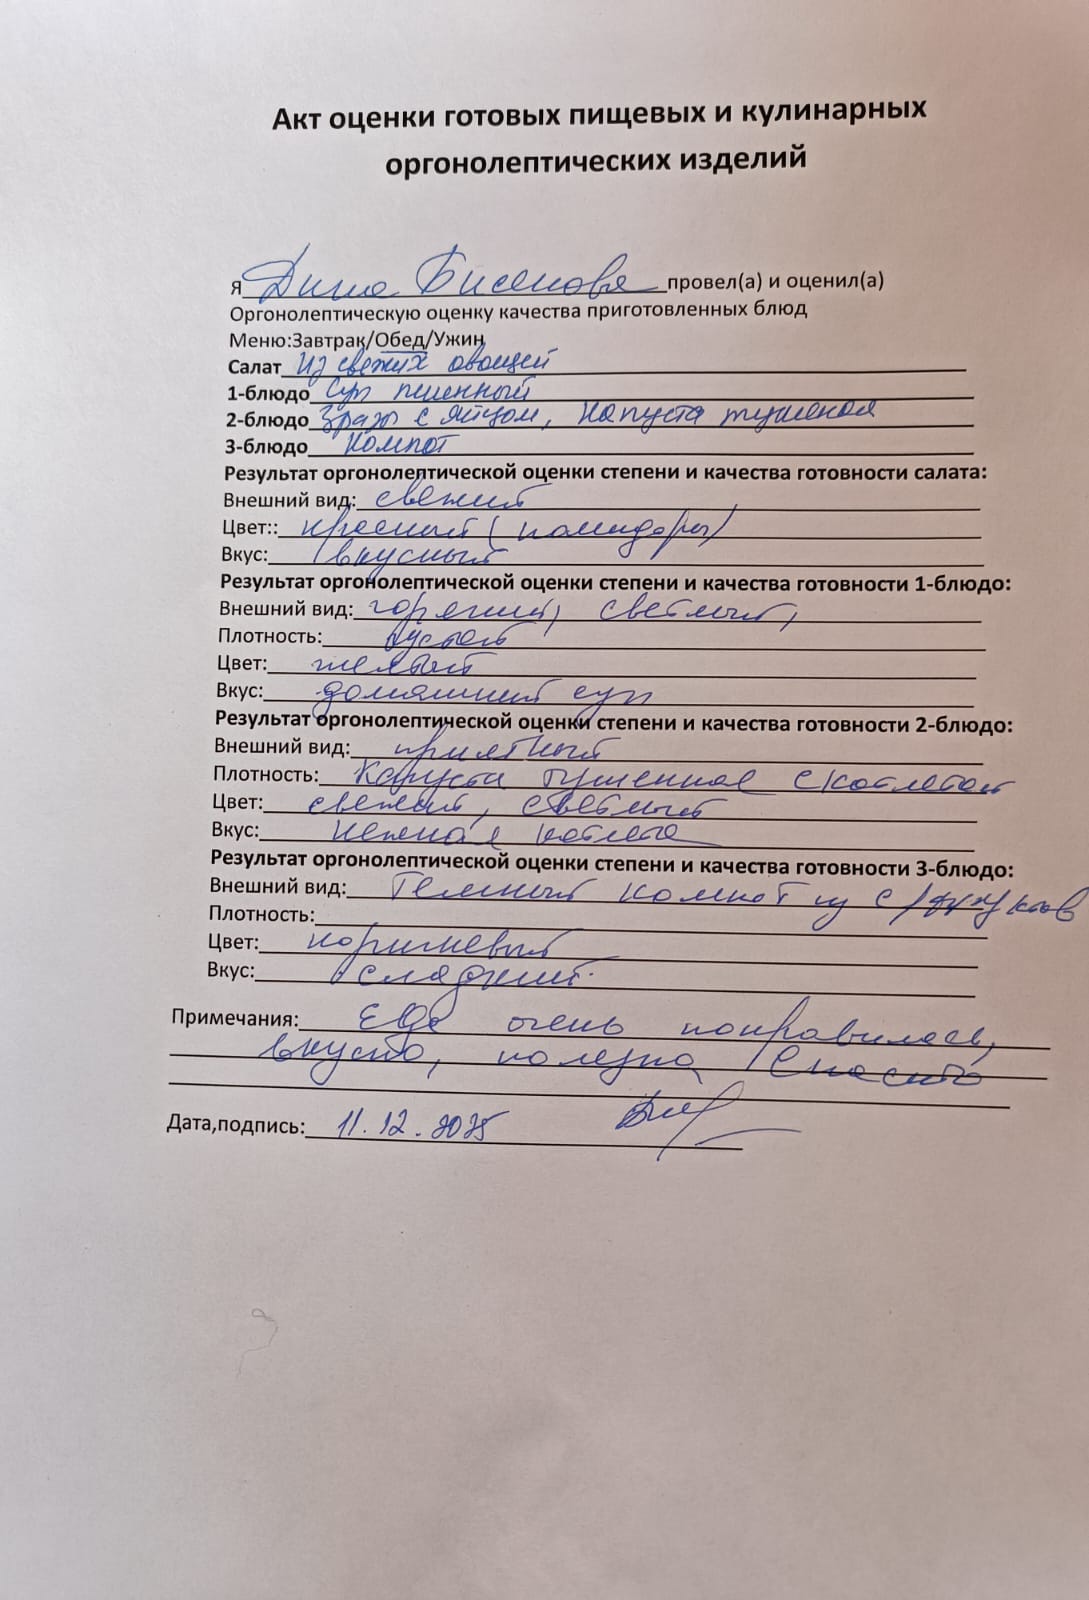 Акт оценки готовых пищевых и кулинарных
оргонолептических изделий
Я Дина Бисенова провел(а) и оценил(а)
Оргонолептическую оценку качества приготовленных блюд
Меню:Завтрак/Обед/Ужин
Салат Из свежих овощей
1-блюдо Суп пшенный
2-блюдо Зразы с яйцом, капуста тушеная
3-блюдо Компот
Результат оргонолептической оценки степени и качества готовности салата:
Внешний вид: свежий
Цвет:: красный (помидоры)
Вкус: вкусный
Результат оргонолептической оценки степени и качества готовности 1-блюдо:
Внешний вид: горячий, светлый,
Плотность: густой
Цвет: желтый
Вкус: домашний суп
Результат оргонолептической оценки степени и качества готовности 2-блюдо:
Внешний вид: приятный
Плотность: Капуста тушенная с котлетой
Цвет: свежий, светлый
Вкус: нежная котлета
Результат оргонолептической оценки степени и качества готовности 3-блюдо:
Внешний вид: Темный компот из с/фруктов
Плотность:
Цвет: коричневый
Вкус: сладкий.
Примечания: Еда очень понравилась,
вкусно, полезно Спасибо
Дата,подпись: 11.12.2025